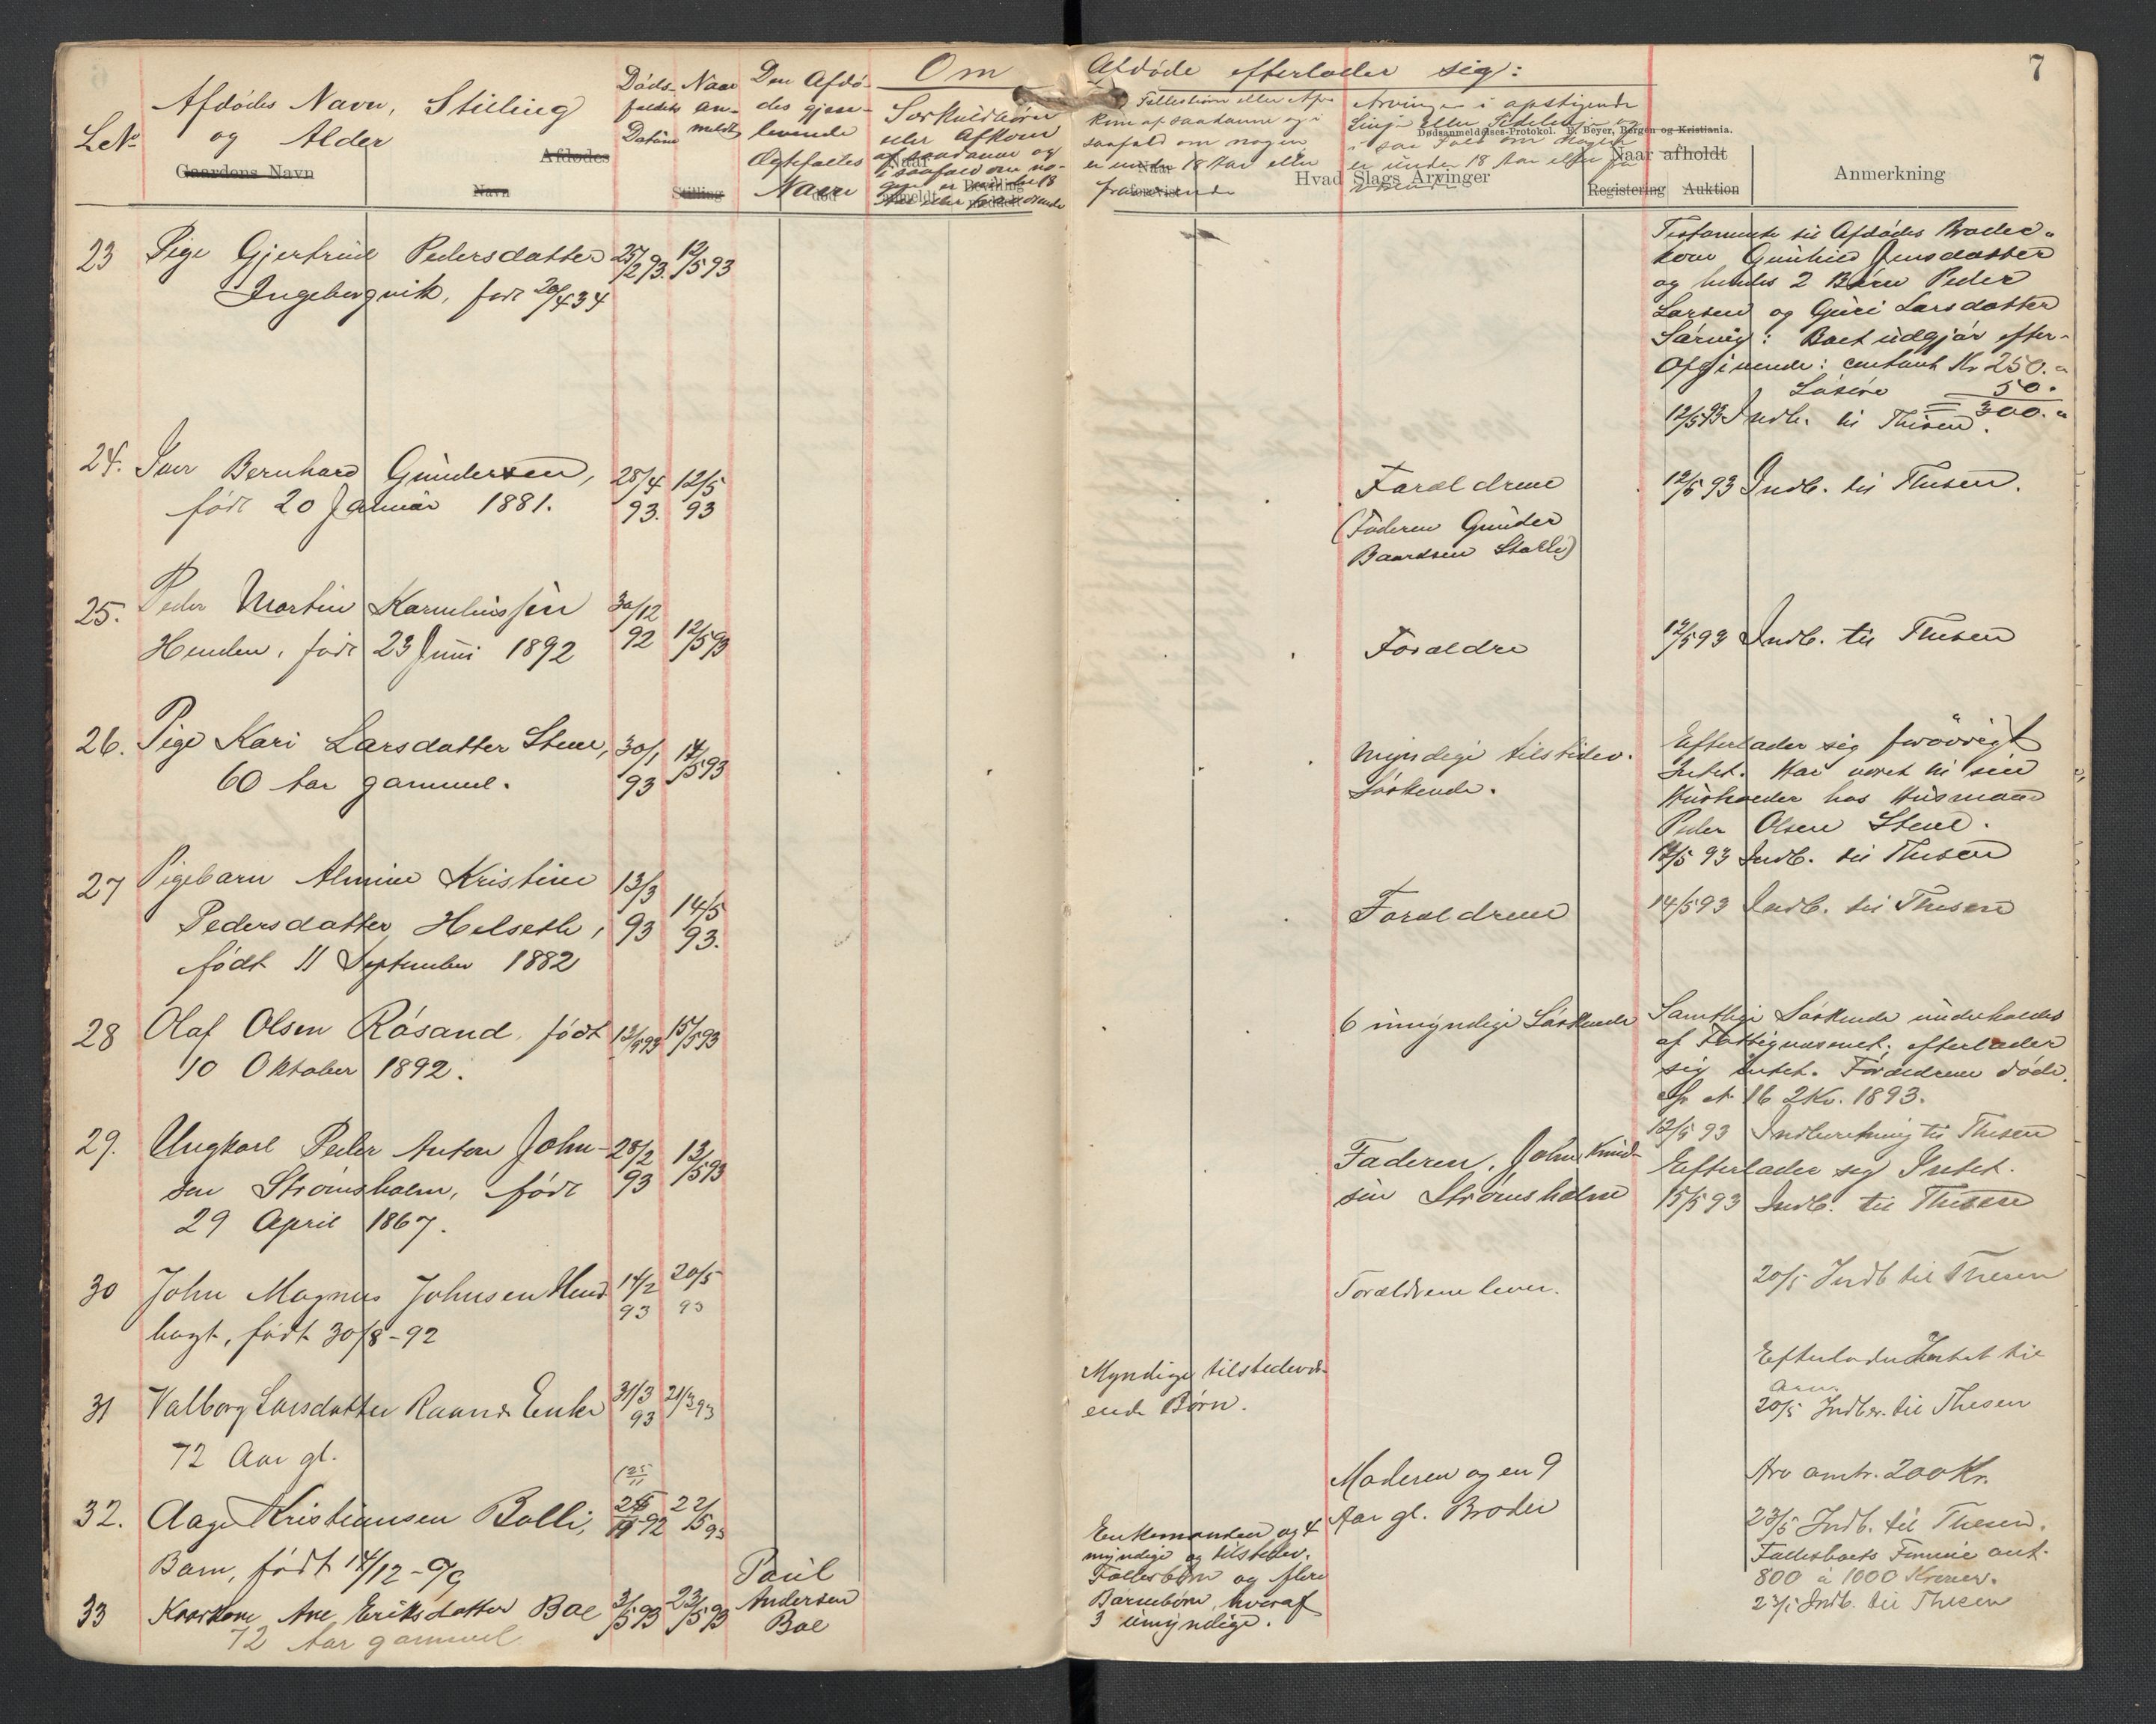 7
Om Afdøde efterlader sig:
LNo
Afdødes Navn, Stilling
og Alder
Døds-
faldets
Datum
Naar
an-
meldt
Den Afdø-
des gjen-
levende
Ægtefælles
Navn
Særkuldbørn
eller Afkom
af saadanne og
i saafald om no-
gen er under 18
Aar eller fraværende
Fællesbørn eller Af-
kom af saadanne og i
saafald om nogen
er under 18 Aar eller
fraværende
Arvinger i opstigende
Linje eller Sidelinje og
i saa Fald om nogen
er under 18 Aar eller fra
Gaardens Navn
Afdødes
Navn
Stilling
Naar
død
anmeldt
Bevilling
meddelt
Naar
Hvad Slags Arvinger
Dødsanmeldelses-Protokol. F. Beyer, Bergen og Kristiania.
Naar afholdt
Registering Auktion
Anmerkning
23 Pige Gjertrud Pedersdatter 25/2 93. 12/5 93
Ingebergvik, født 20/4 34
Testamente til Afdødes Broder-
kone Gunhild Jensdatter
og hendes 2 Børn Peder
Larsen og Guri Larsdatter
Sørvig: Boet udgjør efter
Opgivende: contant Kr 250.
Løsøre 50.
= 300.
12/5 93 Indb. til Thesen.
24. Iver Bernhard Gundersen, 28/4 93. 12/5 93
født 20 Januar 1881.
Forældrene
(Faderen Gunder
Baardsen Stalle)
12/5 93 Indb. til Thesen.
25. Peder Martin Kornelinssen 30/12 92 12/5 93
Henden, født 23 Juni 1892
Forældre
12/5 93 Indb. til Thesen
26. Pige Kari Larsdatter Stene, 30/1 93 14/5 93
60 Aar gammel.
Myndige tilstedev.
Søskende.
Efterlader sig forøvrigt
Intet. Har været til sin
Husholder hos Husmand
Peder Olsen Stene.
14/5 93 Indb. til Thesen
27 Pigebarn Almine Kristine 13/3 93 14/5 93.
Pedersdatter Helseth,
født 11 September 1882
Forældrene
14/5 93 Indb. til Thesen
28 Olaf Olsen Røsand, født 13/5 93 15/5 93
10 Oktober 1892.
6 umyndige Søskende
Samtlige Søskende underholdes
af Fattigvæsenet. efterlader
sig intet. Forældrene døde.
16 2Kv. 1893.
12/5 93 Indberetning til Thesen
29. Ungkarl Peder Anton John- 28/2 93 13/5 93
sen Strømsholm, født
29 April 1867.
Faderen, John Knud-
sen Strømsholm
Efterlader sig Intet.
15/5 93 Indb. til Thesen
30 John Magnus Johnsen Hend 14/2 93 20/5 93
hagt, født 30/8-92
Forældrene lever.
20/5 Indb til Thesen
31 Valborg Larsdatter Raand Enke 31/3 93 21/3 93
72 Aar gl.
Myndige tilstedevær-
ende Børn.
Efterlader Intet til
Arv.
20/5 Indber. til Thesen
32. Aage Kristiansen Bolli, 92 22/5 93
Barn, født 14/12-
Moderen og en 9
Aar gl. Broder
Arv omtr. 200 Kr.
23/5 Indb. til Thesen.
33 Kaarkone Ane Eriksdatter Boe 3/5 93 23/5 93
72 Aar gammel
Paul
Andersen
Boe
Enkemanden og 4
myndige og tilstedev.
Fællesbørn og flere
Børnebørn, hvoraf
3 umyndige.
Fællesboets Formue ant.
800 à 1000 Kroner.
23/5 Indb. til Thesen